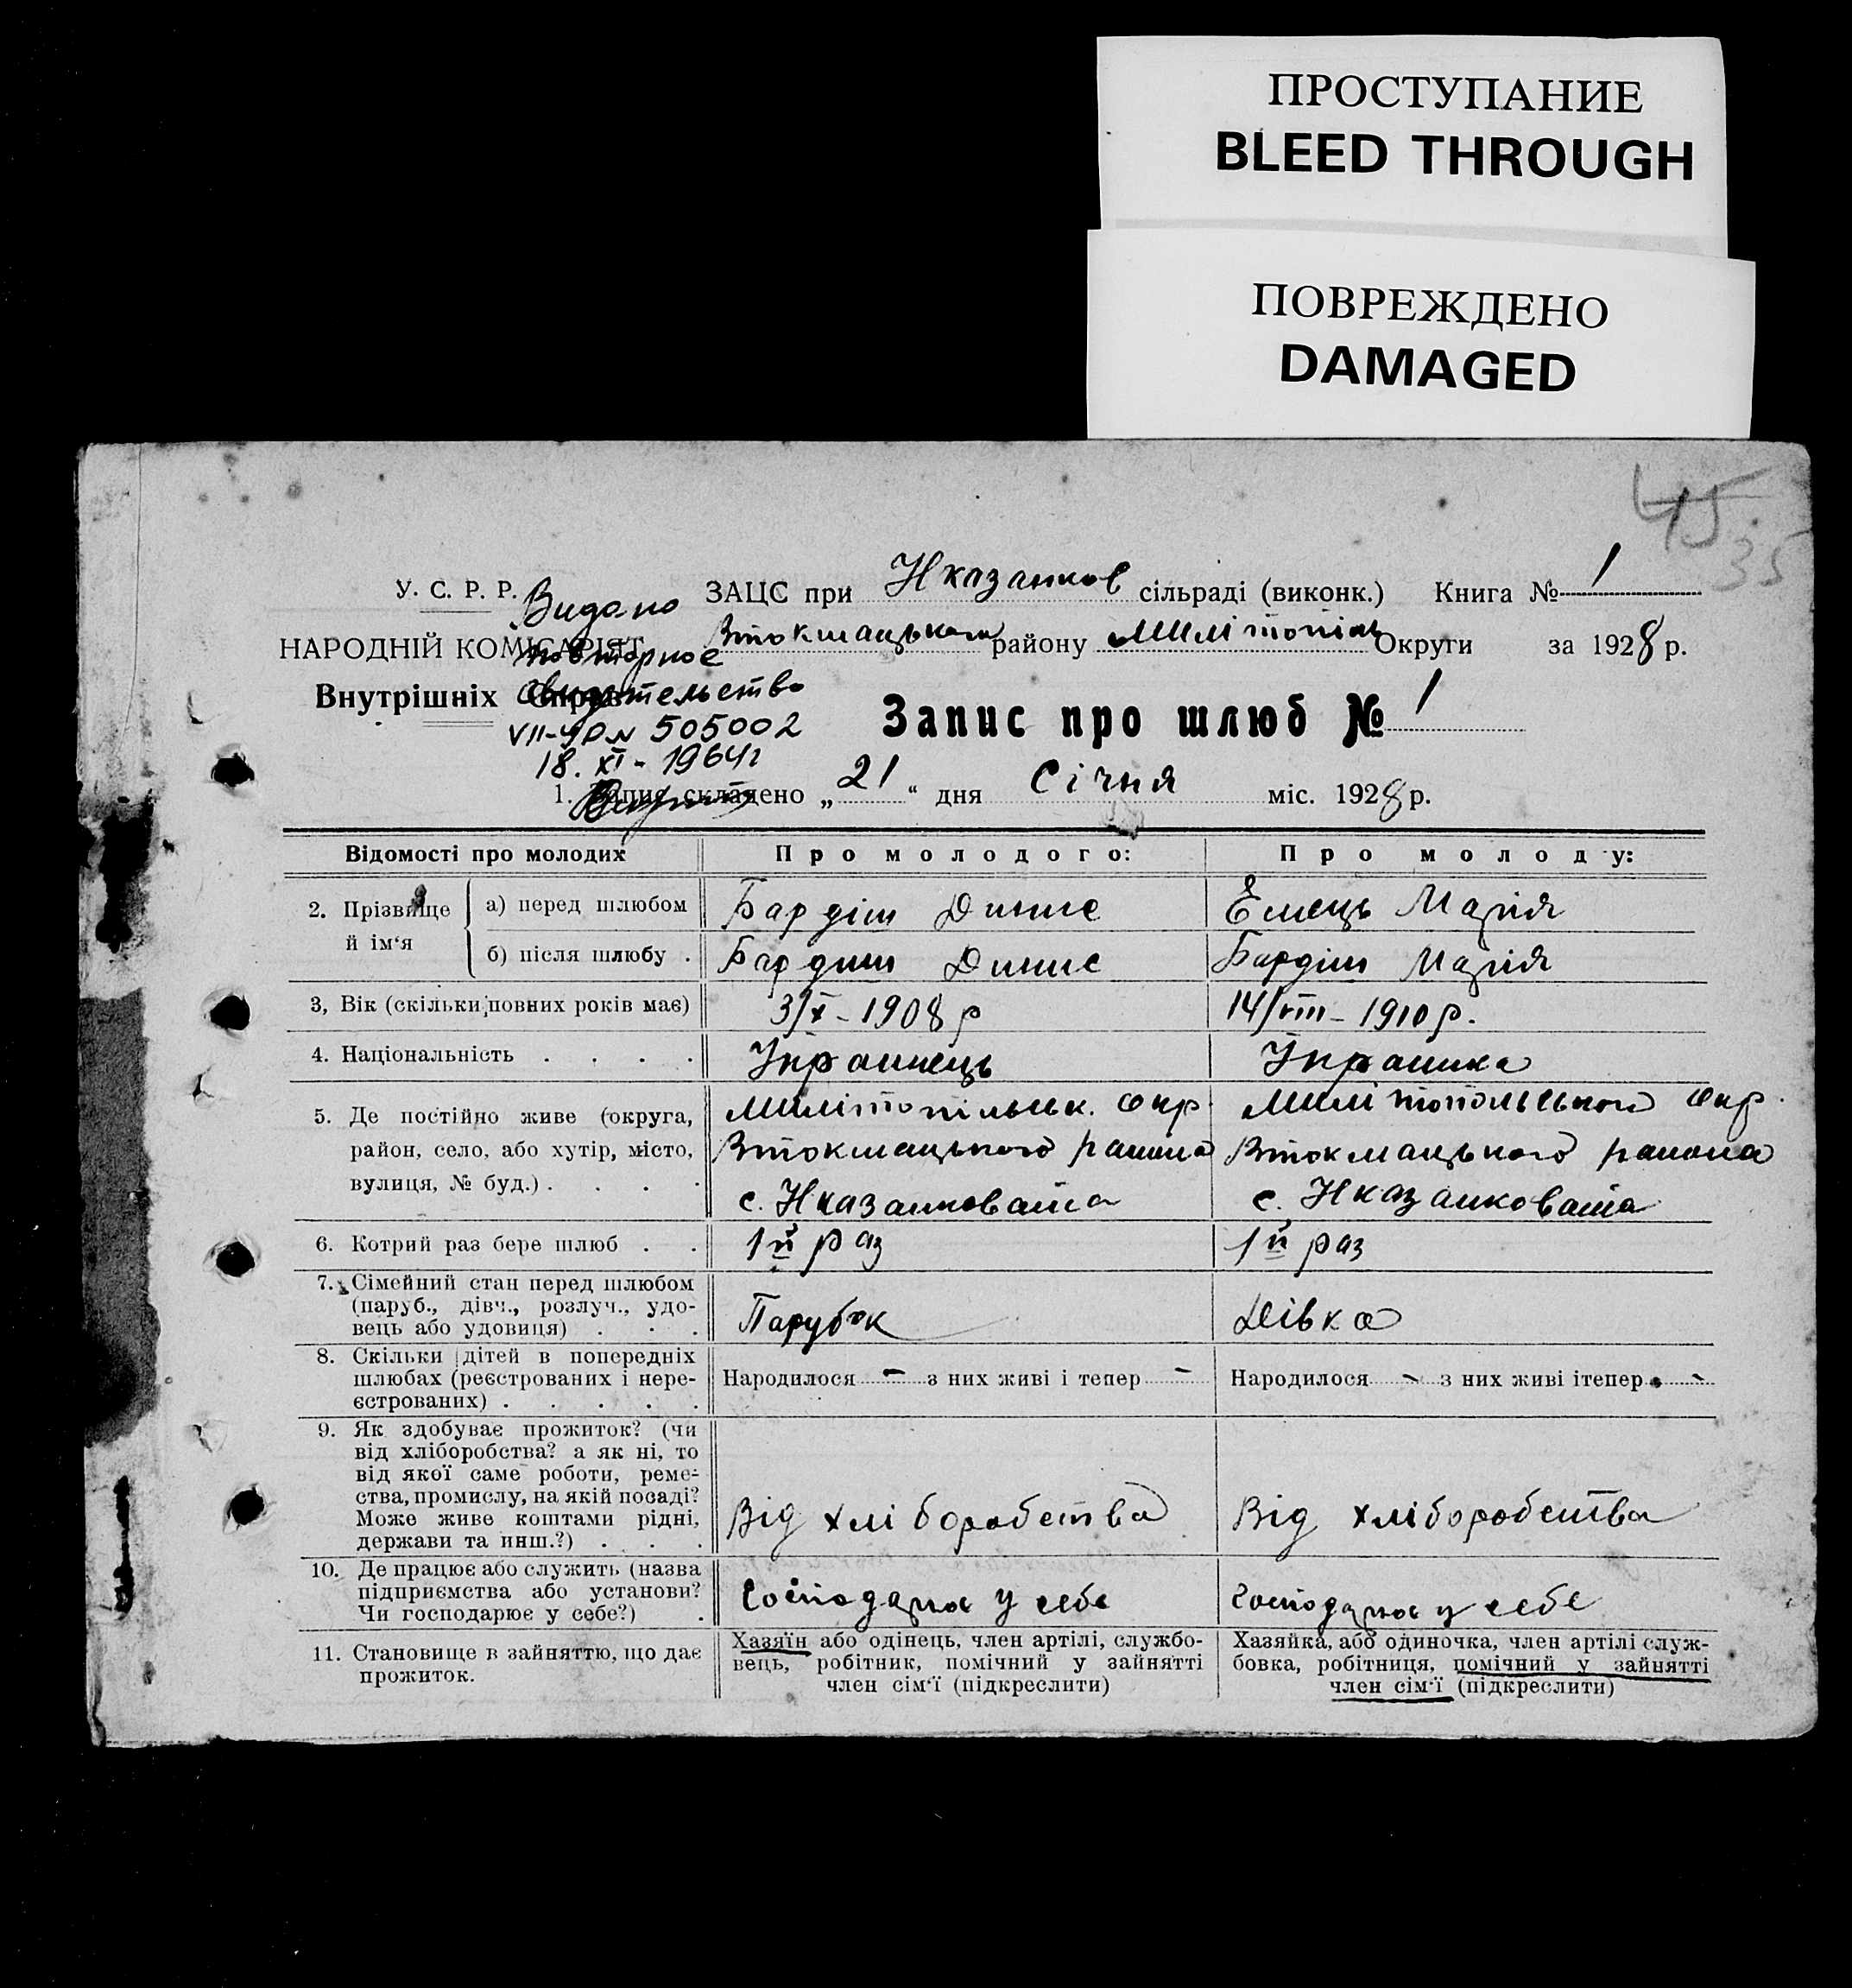 ПРОСТУПАНИЕ
BLEED THROUGH
ПОВРЕЖДЕНО
DAMAGED
45
35
У. С. Р. Р. ЗАЦС при Нказанков сільраді (виконк.) Книга № 1
НАРОДНІЙ КОМІСАРІЯТ Втокмацького району Милітопіль Округи за 1928 р.
Внутрішніх Справ
Видано
повторное
свидетельство
VII-УР № 505002
18. XI - 1964г
Запис про шлюб № 1
1. Запис складено „21“ дня Січня міс. 1928 р.
Відомості про молодих Про молодого: Про молоду:
2. Прізвище й ім‘я
а) перед шлюбом Бардіш Динис Емець Марія
б) після шлюбу . Бардиш Динис Бардіш Марія
3, Вік (скільки повних років має) 3/X - 1908 р 14/VIII - 1910 р.
4. Національність . . . . Украинець Украинка
5. Де постійно живе (округа, Милітопільськ. Окр. Милітопольського Окр.
район, село, або хутір, місто, Втокмацького района Втокмацького района
вулиця, № буд.) . . . . с. Нказанковата с. Нказанковата
6. Котрий раз бере шлюб . . 1й раз 1й раз
7. Сімейний стан перед шлюбом
(паруб., дівч., розлуч., удо-
вець або удовиця) . . . Парубок Дівка
8. Скільки дітей в попередніх
шлюбах (реєстрованих і нере- Народилося - з них живі і тепер - Народилося - з них живі ітепер -
єстрованих) . . . . .
9. Як здобуває прожиток? (чи
від хліборобства? а як ні, то
від якої саме роботи, реме-
ства, промислу, на якій посаді?
Може живе коштами рідні, Від хліборобства Від хліборобства
держави та инш.?) . . .
10. Де працює або служить (назва
підприємства або установи? Господарює у себе Господарює у себе
Чи господарює у себе?) .
11. Становище в зайняттю, що дає
прожиток.
Хазяїн або одінець, член артілі, службо-
вець, робітник, помічний у зайнятті
член сім‘ї (підкреслити)
Хазяйка, або одиночка, член артілі служ-
бовка, робітниця, помічний у зайнятті
член сім‘ї (підкреслити)